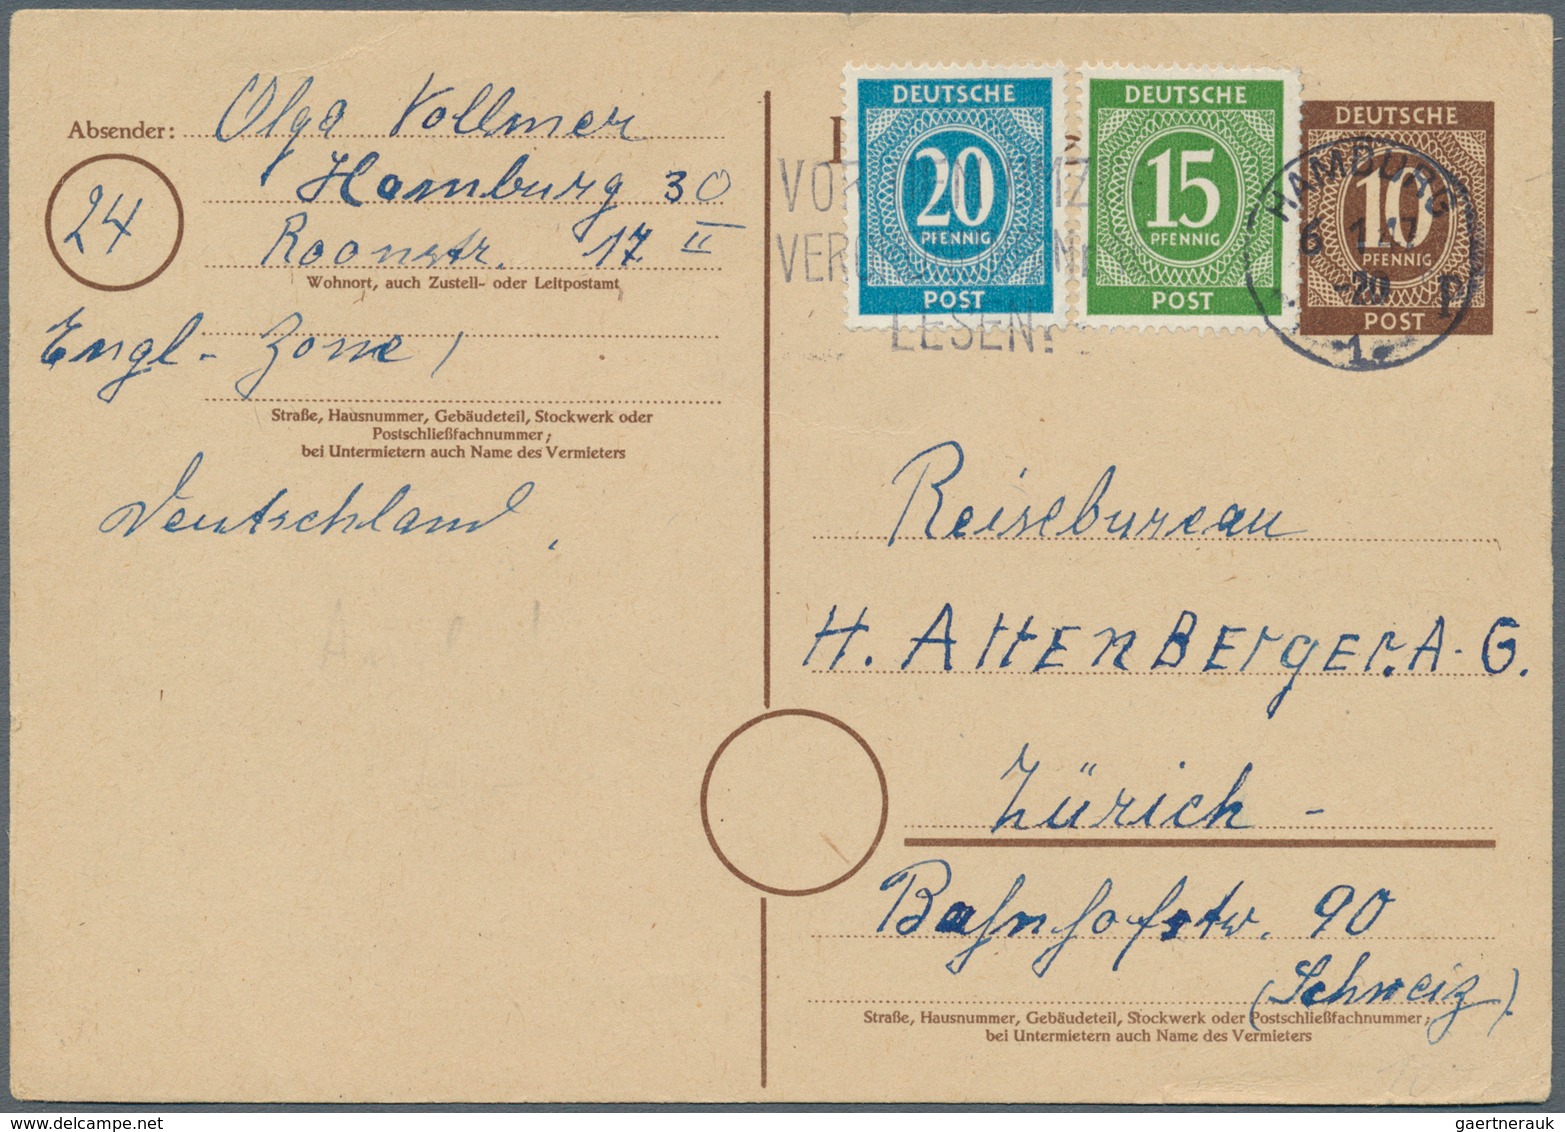 Absender: Olga Vollmer
Hamburg 30
24
Roonstr. 17 II
Wohnort, auch Zustell- oder Leitpostamt
Engl- Zone,
Straße, Hausnummer, Gebäudeteil, Stockwerk oder
Postschließfachnummer;
bei Untermietern auch Name des Vermieters
Deutschland,
DEUTSCHE
20
PFENNIG
POST
DEUTSCHE
15
PFENNIG
POST
DEUTSCHE
10
PFENNIG
POST
HAMBURG
6.1.47
-20
P
1
LESEN!
Reisebureau
H. AttenBerger. A. G.
Zürich -
Bahnhofstr. 90
(Schweiz)
Straße, Hausnummer, Gebäudeteil, Stockwerk oder Postschließfachnummer;
bei Untermietern auch Name des Vermieters
gaertnerauk